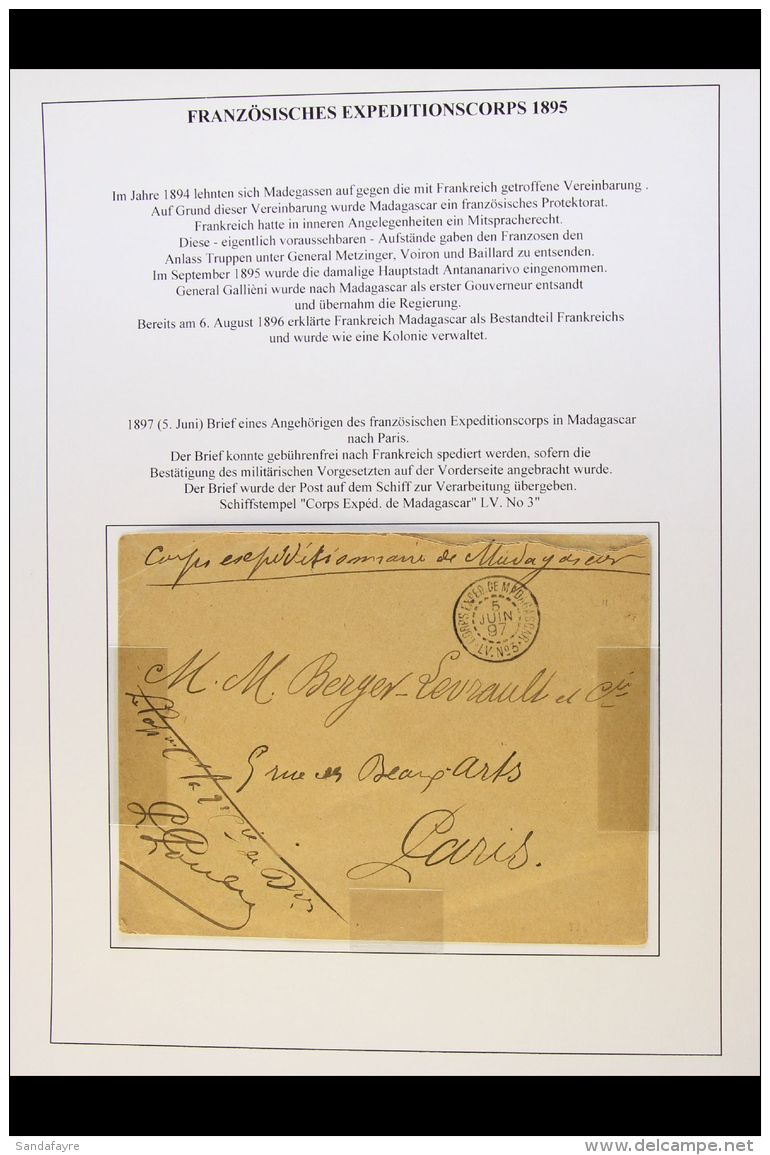 FRANZÖSISCHES EXPEDITIONSCORPS 1895
Im Jahre 1894 lehnten sich Madegassen auf gegen die mit Frankreich getroffene Vereinbarung .
Auf Grund dieser Vereinbarung wurde Madagascar ein französisches Protektorat.
Frankreich hatte in inneren Angelegenheiten ein Mitspracherecht.
Diese - eigentlich voraussehbaren - Aufstände gaben den Franzosen den
Anlass Truppen unter General Metzinger, Voiron und Baillard zu entsenden.
Im September 1895 wurde die damalige Hauptstadt Antananarivo eingenommen.
General Gallièni wurde nach Madagascar als erster Gouverneur entsandt
und übernahm die Regierung.
Bereits am 6. August 1896 erklärte Frankreich Madagascar als Bestandteil Frankreichs
und wurde wie eine Kolonie verwaltet.
1897 (5. Juni) Brief eines Angehörigen des französischen Expeditionscorps in Madagascar
nach Paris.
Der Brief konnte gebührenfrei nach Frankreich spediert werden, sofern die
Bestätigung des militärischen Vorgesetzten auf der Vorderseite angebracht wurde.
Der Brief wurde der Post auf dem Schiff zur Verarbeitung übergeben.
Schiffstempel "Corps Expéd. de Madagascar" LV. No 3"
Corps expéditionnaire de Madagascar
CORPS EXPED. DE MADAGASCAR
5
JUIN
97
LV. No3
M. M. Berger-Levrault et Cie
5 rue des Beaux-Arts
Paris.
Sandafayre
delcampe.net